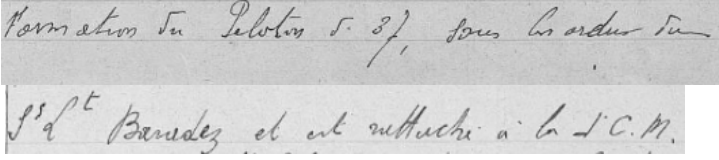 Formation du Peloton de 37, sous les ordres du
Ss Lt Baradez et est rattaché à la 1e C.M.